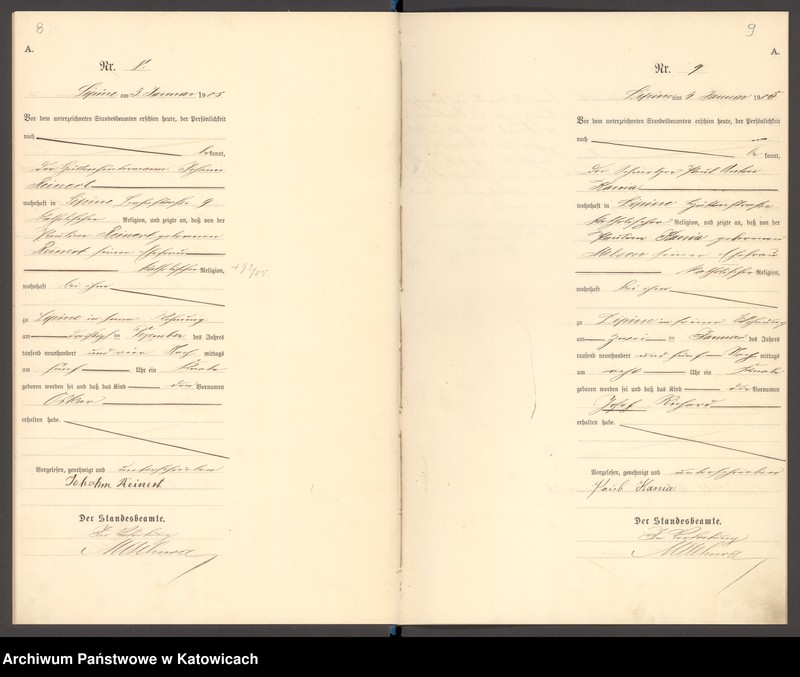 8
A.
Nr. 8.
Lipine am 3. Januar 1905
Vor dem unterzeichneten Standesbeamten erschien heute, der Persönlichkeit
nach
bekannt,
der Johann
Reinert
wohnhaft in Lipine 9
katholischer Religion, und zeigte an, daß von der
Reinert geborenen
seiner Ehefrau
katholischer Religion,
wohnhaft bei ihm
zu Lipine in seiner Wohnung
am Dezember des Jahres
tausend neunhundert und vier Nach mittags
um fünf Uhr ein Knabe
geboren worden sei und daß das Kind den Vornamen
Oskar
erhalten habe.
Vorgelesen, genehmigt und unterschrieben
Johann Reinert
Der Standesbeamte.
In Vertretung
9
A.
Nr. 9
Lipine am 4. Januar 1905
Vor dem unterzeichneten Standesbeamten erschien heute, der Persönlichkeit
nach
bekannt,
der Paul
Kania
wohnhaft in Lipine Hüttenstraße
katholischer Religion, und zeigte an, daß von der
Kania geborenen
seiner Ehefrau
katholischer Religion,
wohnhaft bei ihm
zu Lipine in seiner Wohnung
am zwei ten Januar des Jahres
tausend neunhundert und fünf Nach mittags
um acht Uhr ein Knabe
geboren worden sei und daß das Kind die Vornamen
Josef Richard
erhalten habe.
Vorgelesen, genehmigt und unterschrieben
Paul Kania
Der Standesbeamte.
In Vertretung
Archiwum Państwowe w Katowicach